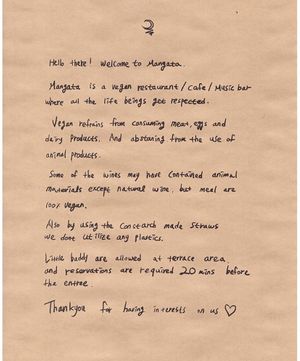 Hello there! Welcome to Mangata.
Mangata is a vegan restaurant / Cafe / Music bar
where all the life beings get respected.
Vegan refrains from consuming meat, eggs and
dairy products. And abstaning from the use of
animal products.
Some of the wines may have contained animal
materials except natural wine, but meal are
100% vegan.
Also by using the Constarch made straws
we dont utilize any plastics.
Little buddy are allowed at terrace area,
and reservations are required 20 mins before
the entree
Thankyou for having interests on us ♡